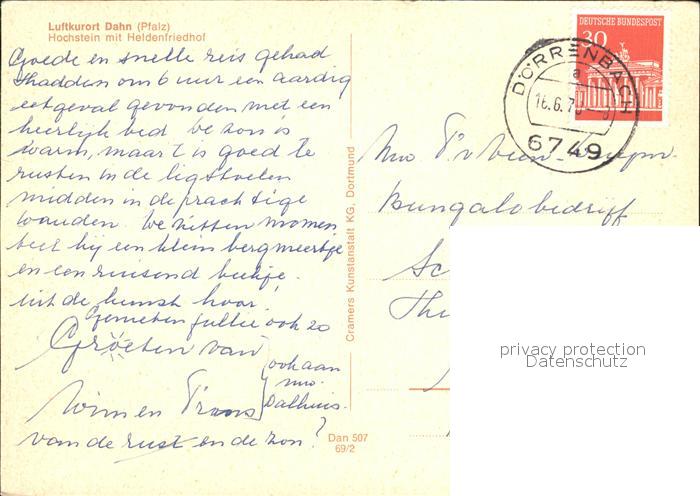 Luftkurort Dahn (Pfalz)
Hochstein mit Heldenfriedhof
Goede en snelle reis gehad
Hadden om 6 uur een aardig
eetgeval gevonden met een
heerlijk bed. De zon is
warm, maar 't is goed te
rusten in de ligstoelen
midden in de prachtige
wouden. We zitten momen
teel bij een klein bergmeertje
en een ruisend beekje.
uit de kunst hoor!
Genieten jullie ook zo
Groeten van
Wim en Truus
van de rust en de zon?
ook aan
mw.
Dalhuis.
Dan 507
69/2
Cramers Kunstanstalt KG, Dortmund
DEUTSCHE BUNDESPOST
30
DÖRRENBACH
a
16.6.7
6749
Bungalobedrijf
privacy protection
Datenschutz